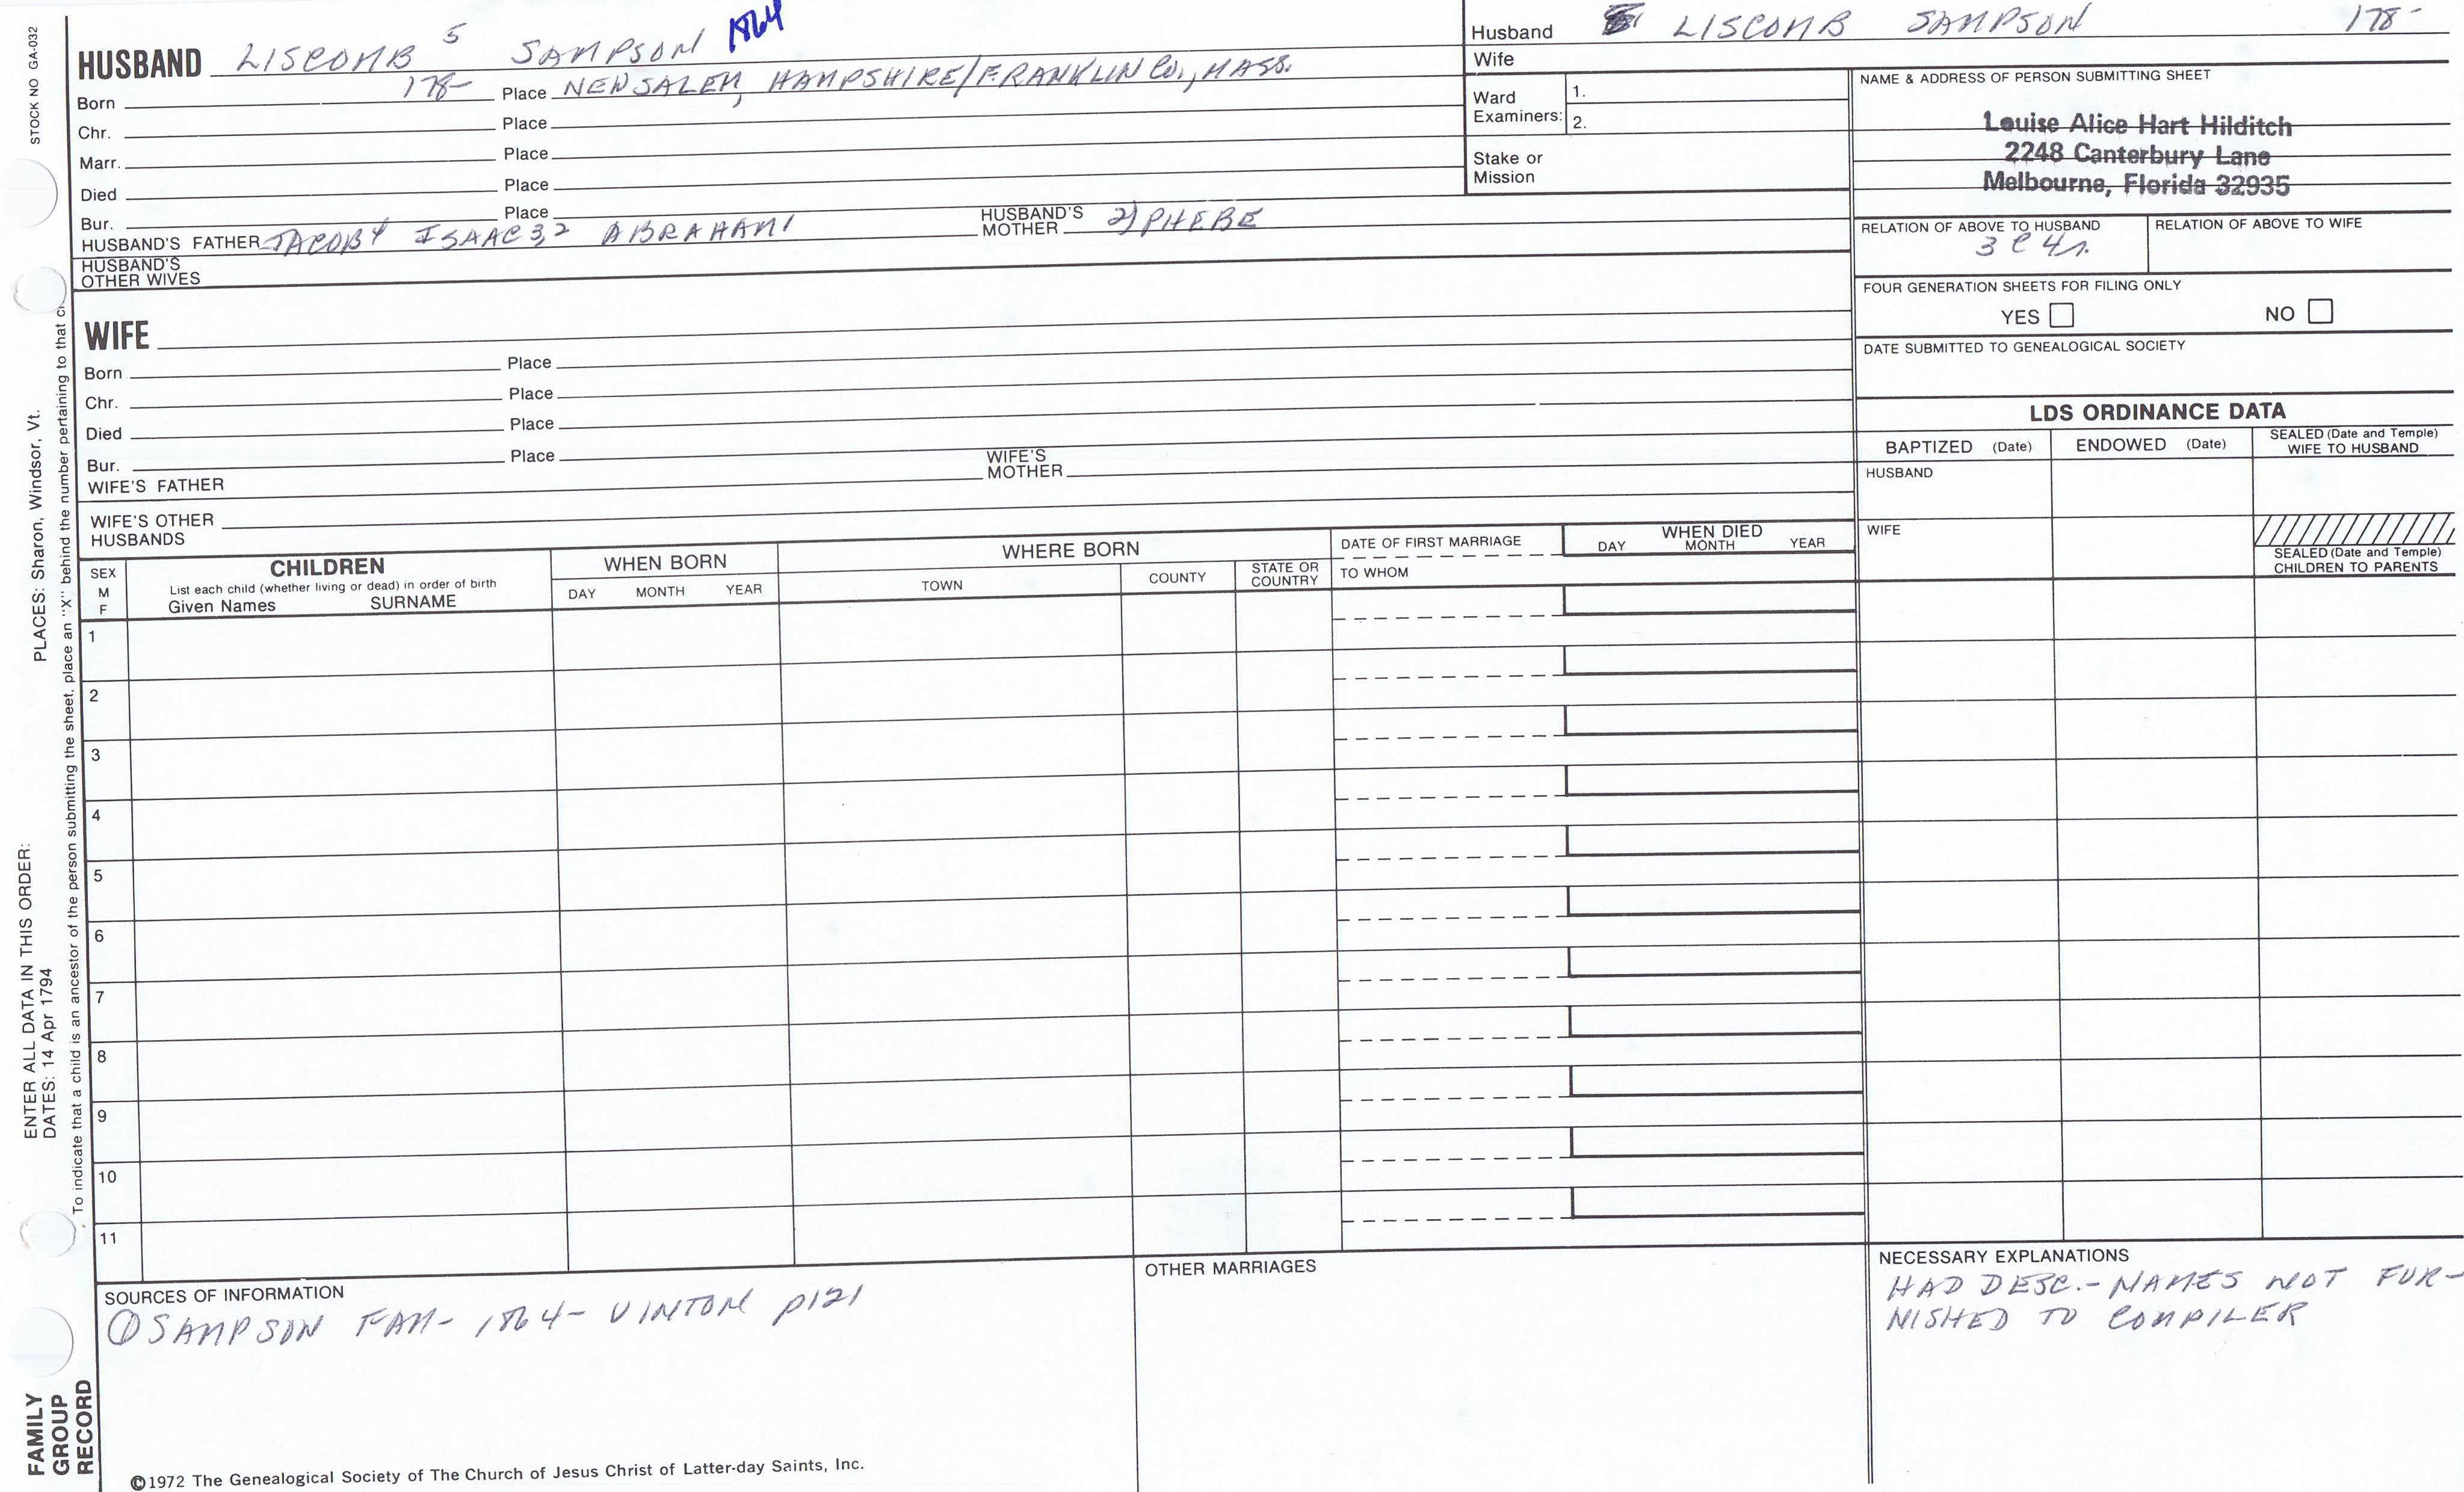 STOCK NO GA-032
HUSBAND LISCOMB 5 SAMPSON 1864
Born 178- Place NEW SALEM, HAMPSHIRE/FRANKLIN Co., MASS.
Chr. Place
Marr. Place
Died Place
Bur. Place
HUSBAND'S FATHER JACOB4 ISAAC3,2 ABRAHAM1 HUSBAND'S MOTHER 2) PHEBE
HUSBAND'S OTHER WIVES
Husband LISCOMB SAMPSON 178-
Wife
Ward Examiners: 1.
2.
Stake or Mission
NAME & ADDRESS OF PERSON SUBMITTING SHEET
Louise Alice Hart Hilditch
2248 Canterbury Lane
Melbourne, Florida 32935
RELATION OF ABOVE TO HUSBAND RELATION OF ABOVE TO WIFE
3 C 4 r.
FOUR GENERATION SHEETS FOR FILING ONLY
YES NO
DATE SUBMITTED TO GENEALOGICAL SOCIETY
WIFE
Born Place
Chr. Place
Died Place
Bur. Place
WIFE'S FATHER WIFE'S MOTHER
WIFE'S OTHER HUSBANDS
LDS ORDINANCE DATA
BAPTIZED (Date) ENDOWED (Date) SEALED (Date and Temple) WIFE TO HUSBAND
HUSBAND
WIFE
SEALED (Date and Temple)
CHILDREN TO PARENTS
SEX M F
CHILDREN
List each child (whether living or dead) in order of birth
Given Names SURNAME
WHEN BORN
DAY MONTH YEAR
WHERE BORN
TOWN COUNTY STATE OR COUNTRY
DATE OF FIRST MARRIAGE
TO WHOM
WHEN DIED
DAY MONTH YEAR
1
2
3
4
5
6
7
8
9
10
11
SOURCES OF INFORMATION
① SAMPSON FAM- 1864- VINTON p121
OTHER MARRIAGES
NECESSARY EXPLANATIONS
HAD DESC.- NAMES NOT FUR-
NISHED TO COMPILER
PLACES: Sharon, Windsor, Vt.
ENTER ALL DATA IN THIS ORDER:
DATES: 14 Apr 1794
To indicate that a child is an ancestor of the person submitting the sheet, place an "X" behind the number pertaining to that
FAMILY
GROUP
RECORD
©1972 The Genealogical Society of The Church of Jesus Christ of Latter-day Saints, Inc.